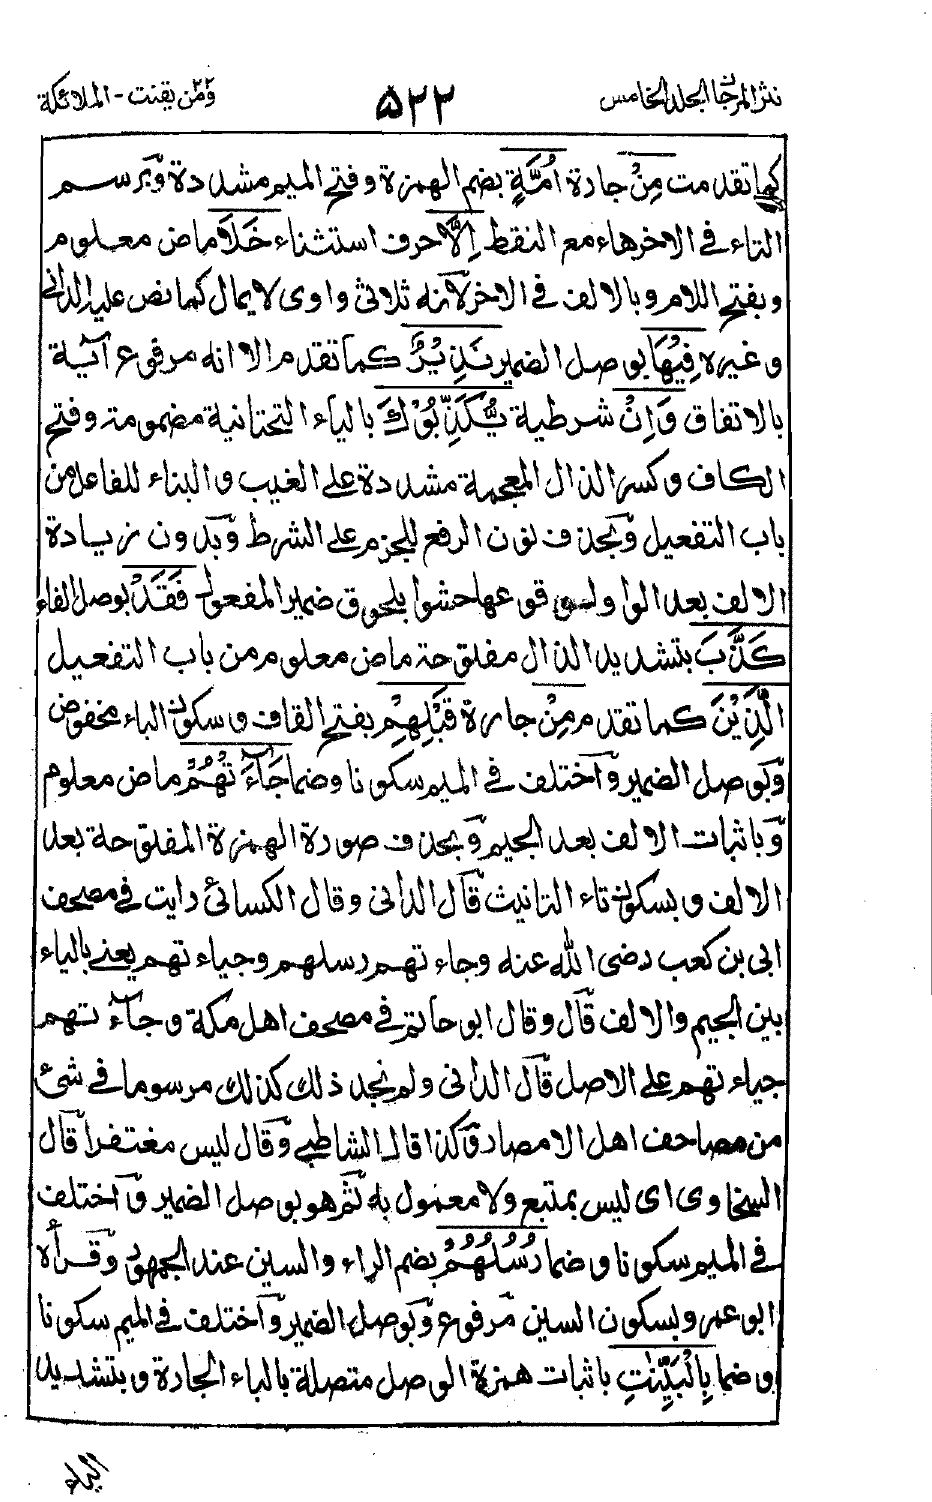 نثر المرجان المجلد الخامس
۵۲۲
ومن يقنت ۲۲ - الملائكة
كما تقدمت مِنْ جارة اُمَّةٍ بضم الهمزة وفتح الميم مشددة وبرسم
التاء في الاخر هاء مع النقط اِلَّا حرف استثناء خَلَا ماض معلوم
وبفتح اللام وبالالف في الاخر لانه ثلاثي واوي لا يمال كما نص عليه الداني
وغيره فِيْهَا بوصل الضمير نَذِيْرٌ كما تقدم الا انه مرفوع آئية
بالاتفاق وَاِنْ شرطية يُّكَذِّبُوْكَ بالياء التحتانية مضمومة وفتح
الكاف وكسر الذال المعجمة مشددة على الغيب والبناء للفاعل من
باب التفعيل وبحذف نون الرفع للجزم على الشرط وبدون زيادة
الالف بعد الواو لوقوعها حشوا بلحوق ضمير المفعول فَقَدْ بوصل الفاء
كَذَّبَ بتشديد الذال مفتوحة ماض معلوم من باب التفعيل
الَّذِيْنَ كما تقدم مِنْ جارة قَبْلِهِمْ بفتح القاف وسكون الباء مخفوض
وبوصل الضمير واختلف في الميم سكونا وضما جَآءَتْهُمْ ماض معلوم
وباثبات الالف بعد الجيم وبحذف صورة الهمزة المفتوحة بعد
الالف وبسكون تاء التانيث قال الداني وقال الكسائي رايت في مصحف
ابي بن كعب رضى الله عنه وجاء تهم رسلهم وجياء تهم يعني بالياء
بين الجيم والالف قال وقال ابو حاتم في مصحف اهل مكة وجآء تهم
جياء تهم على الاصل قال الداني ولم نجد ذلك كذلك مرسوما في شئ
من مصاحف اهل الامصار وكذا قال الشاطبي وقال ليس مغتفرا قال
السخاوى اى ليس بمتبع ولا معمول به ثم هو بوصل الضمير واختلف
في الميم سكونا وضما رُسُلُهُمْ بضم الراء والسين عند الجمهور وقرأه
ابو عمرو بسكون السين مرفوع وبوصل الضمير واختلف في الميم سكونا
وضما بِالْبَيِّنٰتِ باثبات همزة الوصل متصلة بالباء الجارة وبتشديد
الياء